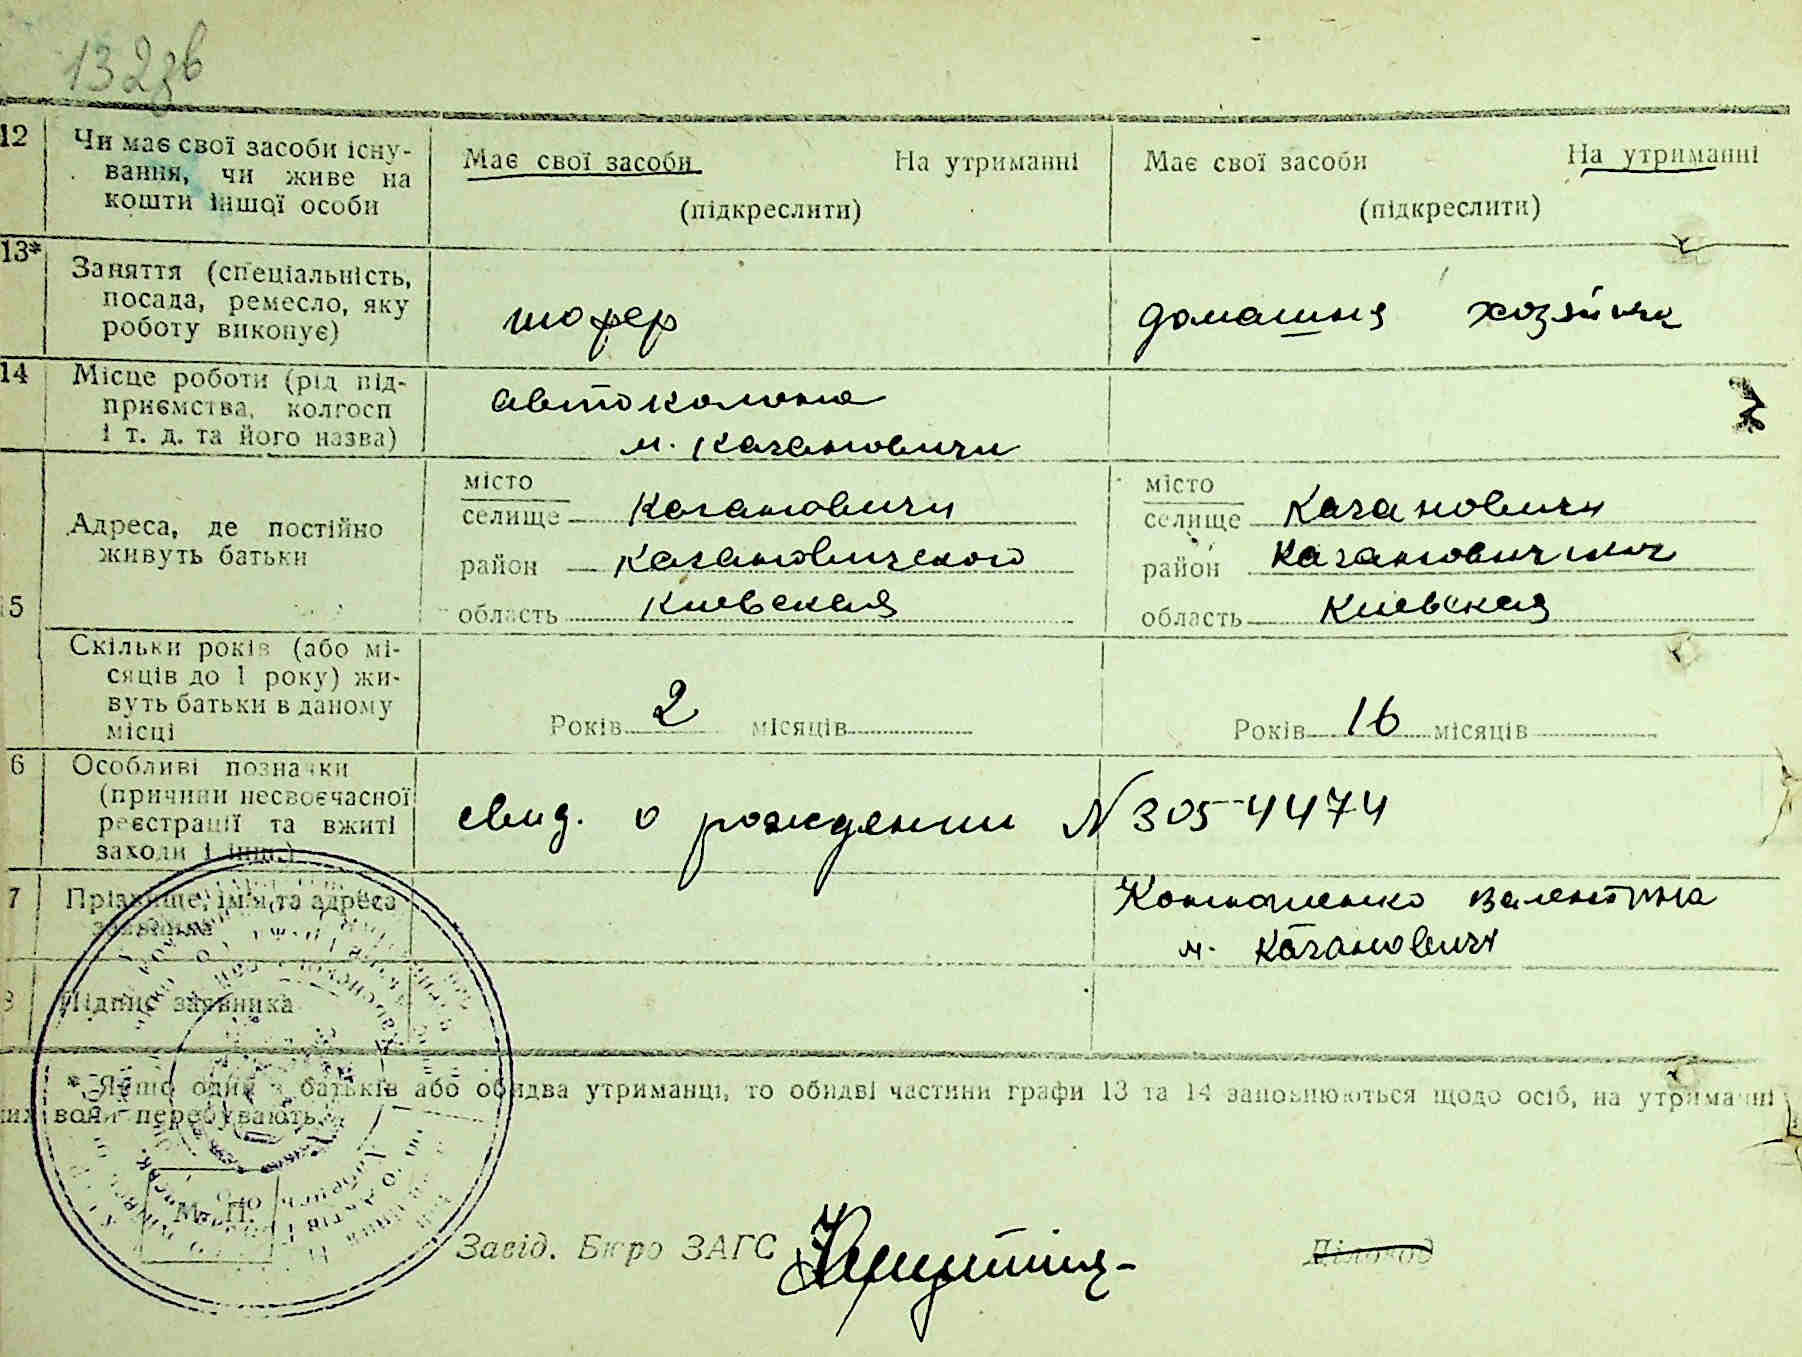 132зв
12 Чи має свої засоби існу-
вання, чи живе на
кошти іншої особи
Має свої засоби На утриманні
(підкреслити)
Має свої засоби На утриманні
(підкреслити)
13* Заняття (спеціальність,
посада, ремесло, яку
роботу виконує)
шофер
домашня хозяйка
14 Місце роботи (рід під-
приємства, колгосп
і т. д. та його назва)
автоколона
м. Кагановичи
15 Адреса, де постійно
живуть батьки
місто
селище Кагановичи
район Кагановичского
область Киевская
місто
селище Кагановичи
район
область Киевская
Скільки років (або мі-
сяців до 1 року) жи-
вуть батьки в даному
місці
Років 2 місяців
Років 16 місяців
6 Особливі позначки
(причини несвоєчасної
реєстрації та вжиті
заходи і інш.)
свид. о рождении N 305-4474
7 Прізвище, ім'я та адреса
заявника
Валентина
м. Кагановичи
8 Підпис заявника
* Якщо один з батьків або обидва утриманці, то обидві частини графи 13 та 14 заповнюються щодо осіб, на утриманні
яких вони перебувають.
М. П.
Завід. Бюро ЗАГС
Діловод